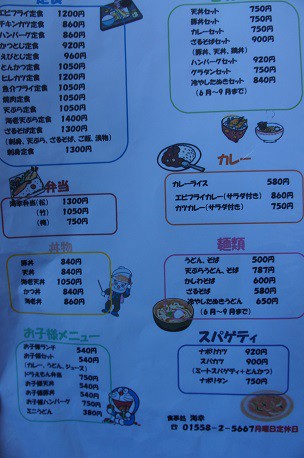 定食
エビフライ定食 1200円
チキンカツ定食 1000円
ハンバーグ定食 960円
かつとじ定食 920円
えびとじ定食 960円
とんかつ定食 1050円
ヒレカツ定食 1200円
魚介フライ定食 1050円
焼肉定食 1050円
天ぷら定食 1050円
海老天ぷら定食 1400円
ざるそば定食 1300円
(刺身、天ぷら、ざるそば、ご飯、漬物)
刺身定食 1300円
弁当
海幸弁当(松) 1300円
(竹) 1050円
(梅) 750円
丼物
豚丼 840円
天丼 840円
海老天丼 1050円
かつ丼 840円
海老丼 860円
お子様メニュー
お子様ランチ 540円
お子様セット 540円
(カレー、うどん、ジュース)
ドラえもん弁当 750円
お子様天丼 540円
お子様豚丼 540円
お子様ハンバーグ 750円
ミニうどん 380円
天丼セット 750円
豚丼セット 750円
カレーセット 750円
ざるそばセット 900円
(豚丼、天丼、鶏丼)
ハンバーグセット 920円
グラタンセット 750円
冷やしたぬきセット 840円
(6月~9月まで)
カレー
カレーライス 580円
エビフライカレー(サラダ付き) 860円
カツカレー(サラダ付き) 750円
麺類
うどん、そば 500円
天ぷらうどん、そば 787円
かしわそば 600円
ざるそば 580円
冷やしたぬきうどん 650円
(6月~9月まで)
スパゲティ
ナポリカツ 920円
スパカツ 900円
(ミートスパゲティ+とんかつ)
ナポリタン 750円
食事処 海幸
☎ 01558-2-5667月曜日定休日